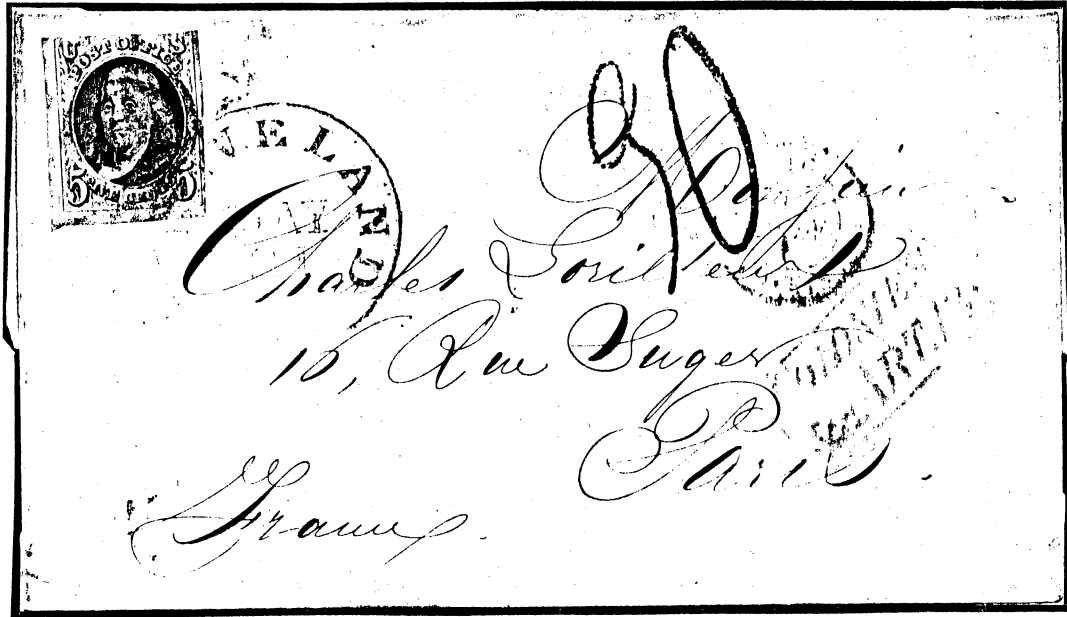 U S
POST OFFICE
5 FIVE CENTS 5
VELAND
30
Monsieur
Charles Lorilleux
16, Rue Suger
Paris.
France.